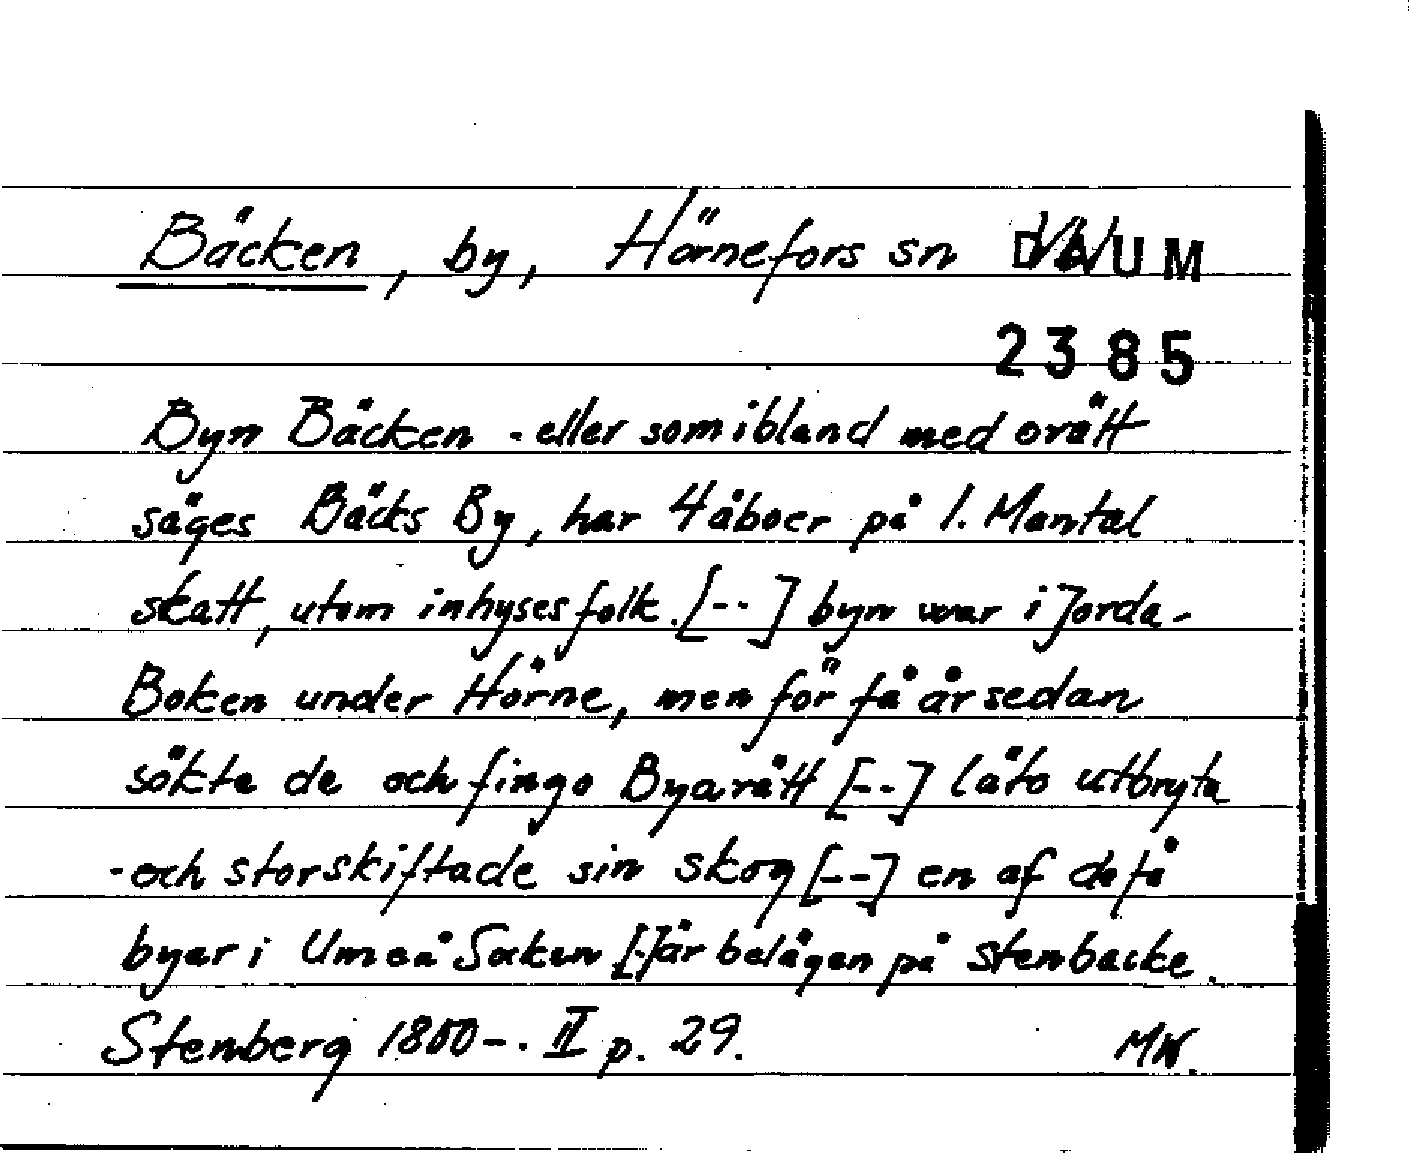 Bäcken, by, Hörnefors sn DAUM
2385
Byn Bäcken - eller som ibland med orätt
säges Bäcks By, har 4 åboer på 1. Mantal
skatt, utom inhyses folk. [--] byn war i Jorda-
Boken under Hörne, men för få år sedan
sökte de och fingo Byarätt [--] läto utbryta
- och storskiftade sin skog [--] en af de få
byar i Umeå Socken [-] är belägen på stenbacke.
Stenberg 1800-. II p. 29. MW.